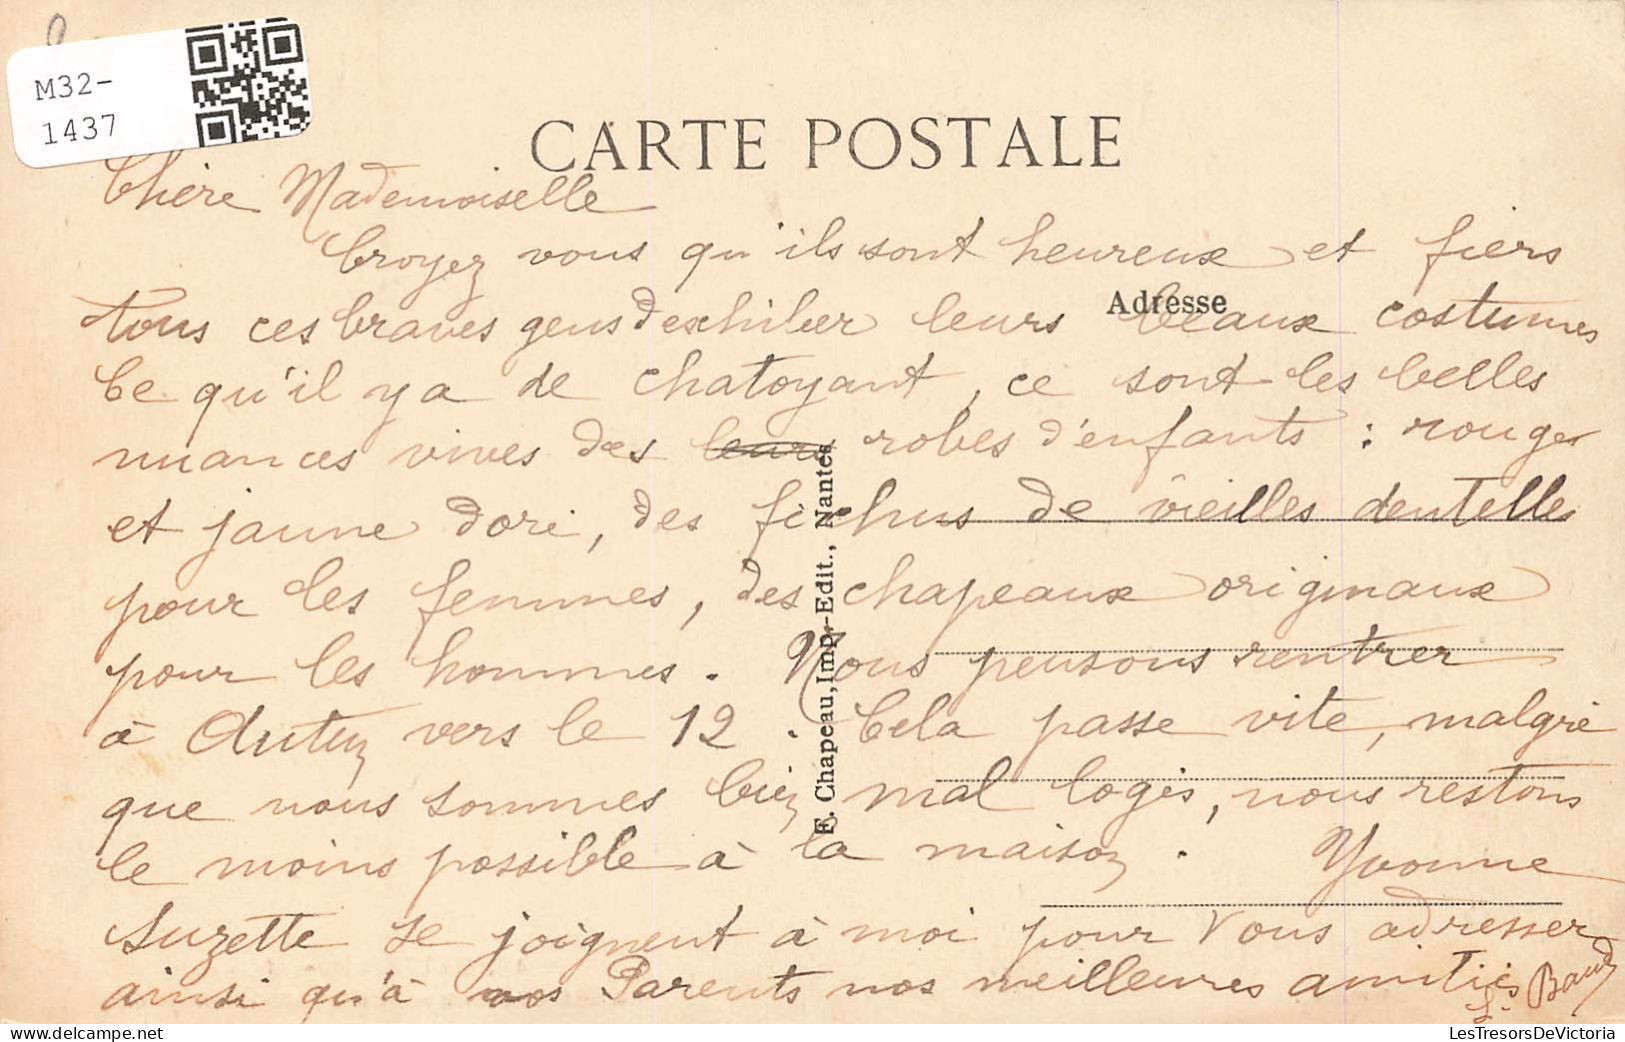 M32-
1437
CARTE POSTALE
Chère Mademoiselle
Croyez vous qu'ils sont heureux et fiers
tous ces braves gens d'exhiber leurs beaux costumes
Adresse
Ce qu'il y a de chatoyant, ce sont les belles
nuances vives des leurs robes d'enfants : rouges
et jaune doré, des fichus de vieilles dentelles
pour les femmes, des chapeaux originaux
pour les hommes. Nous pensons rentrer
à vers le 12. Cela passe vite, malgré
que nous sommes bien mal logés, nous restons
le moins possible à la maison. Yvonne
Suzette se joignent à moi pour vous adresser
ainsi qu'à vos Parents nos meilleures amitiés
F. Chapeau, Imp.-Edit., Nantes
LesTresorsDeVictoria